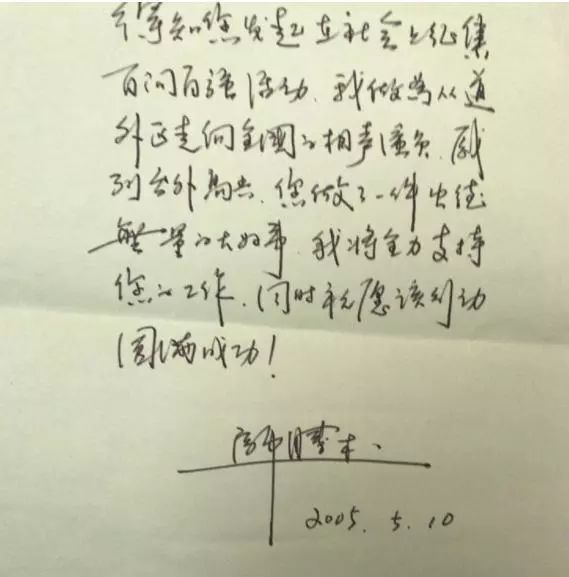 得知您发起在社会上征集
百问百语活动，我做为从道
外区走向全國的相声演员，感
到分外高兴，您做了一件功德
無量的大好事，我将全力支持
您的工作，同时祝愿该活动
圆满成功！
师胜杰
2005.5.10